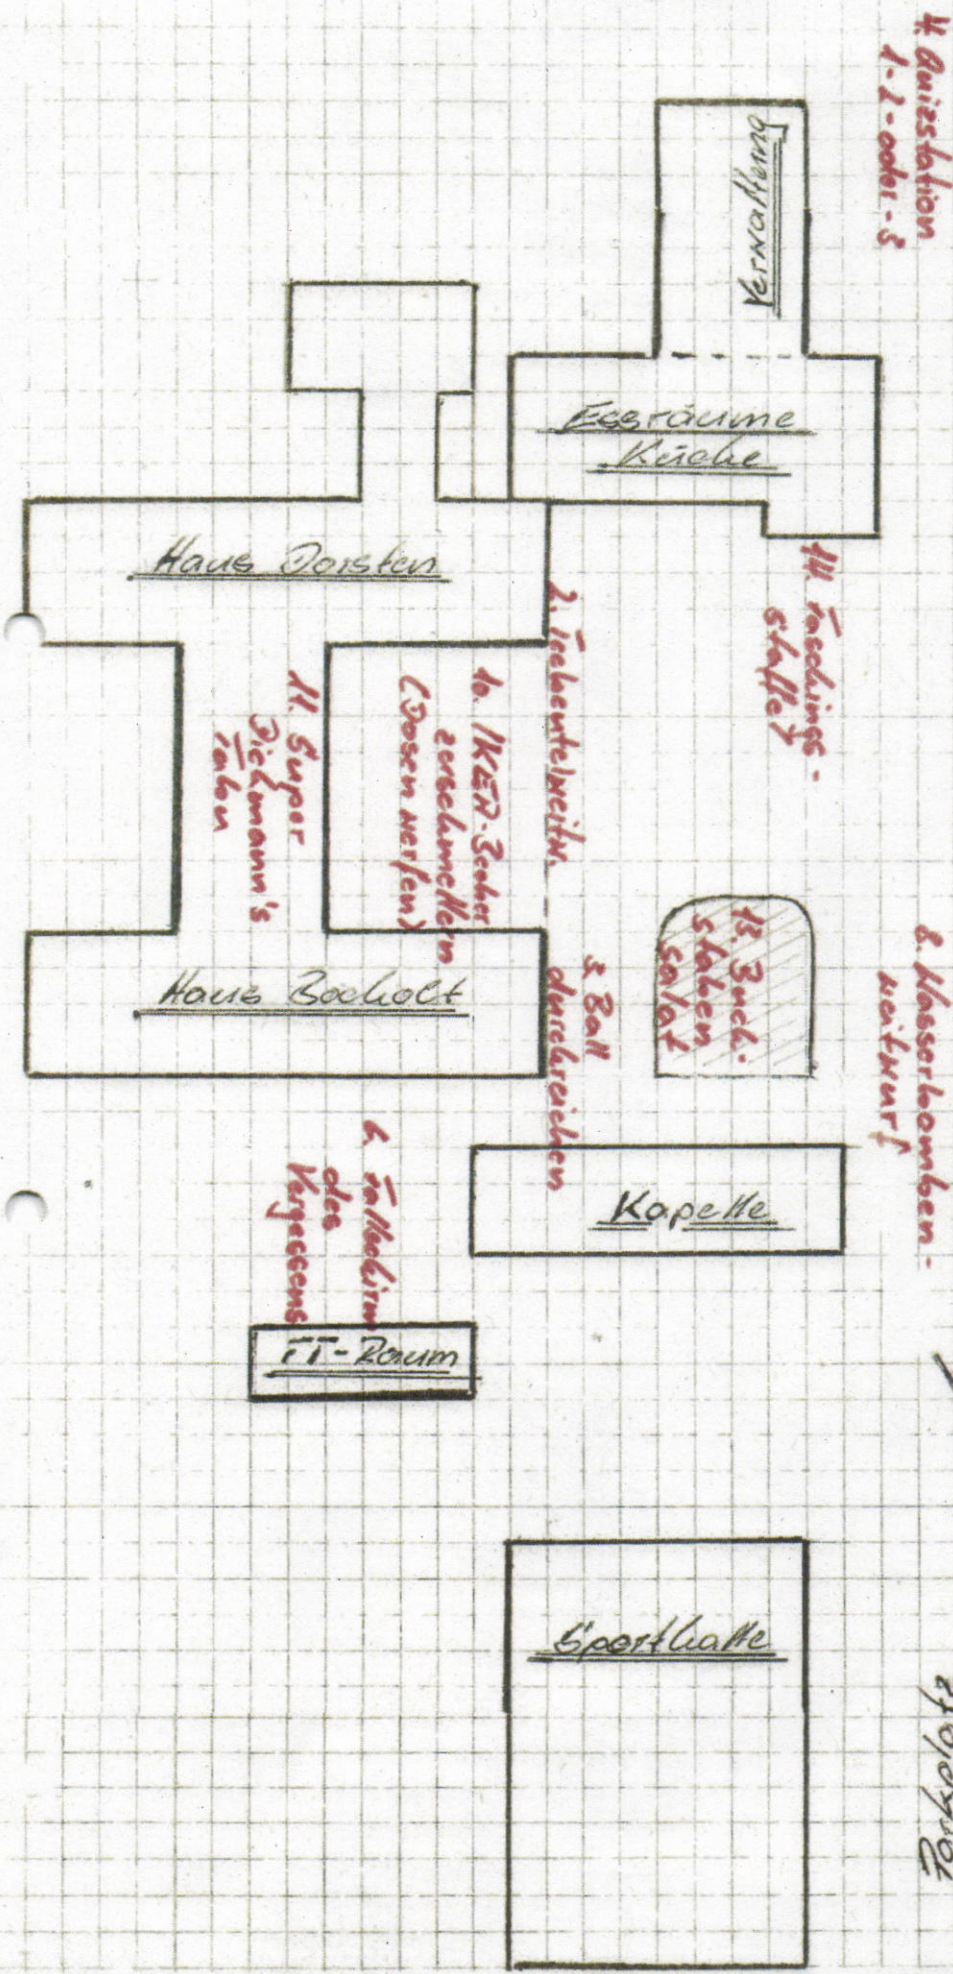 4. Quizstation
1-2-oder-3
Verwaltung
Essräume
Küche
Haus Dorsten
14. Faschings-
staffel
2. Teebeutelweitw.
10. IKEA-Becher
zerschmettern
(Dosen werfen)
11. Super
Dickmann's
13. Buch-
staben
salat
8. Wasserbomben-
weitwurf
Haus Bocholt
3. Ball
durchreichen
Kapelle
6. Fallschirm
des
Vergessens
TT-Raum
Sporthalle
Parkplatz